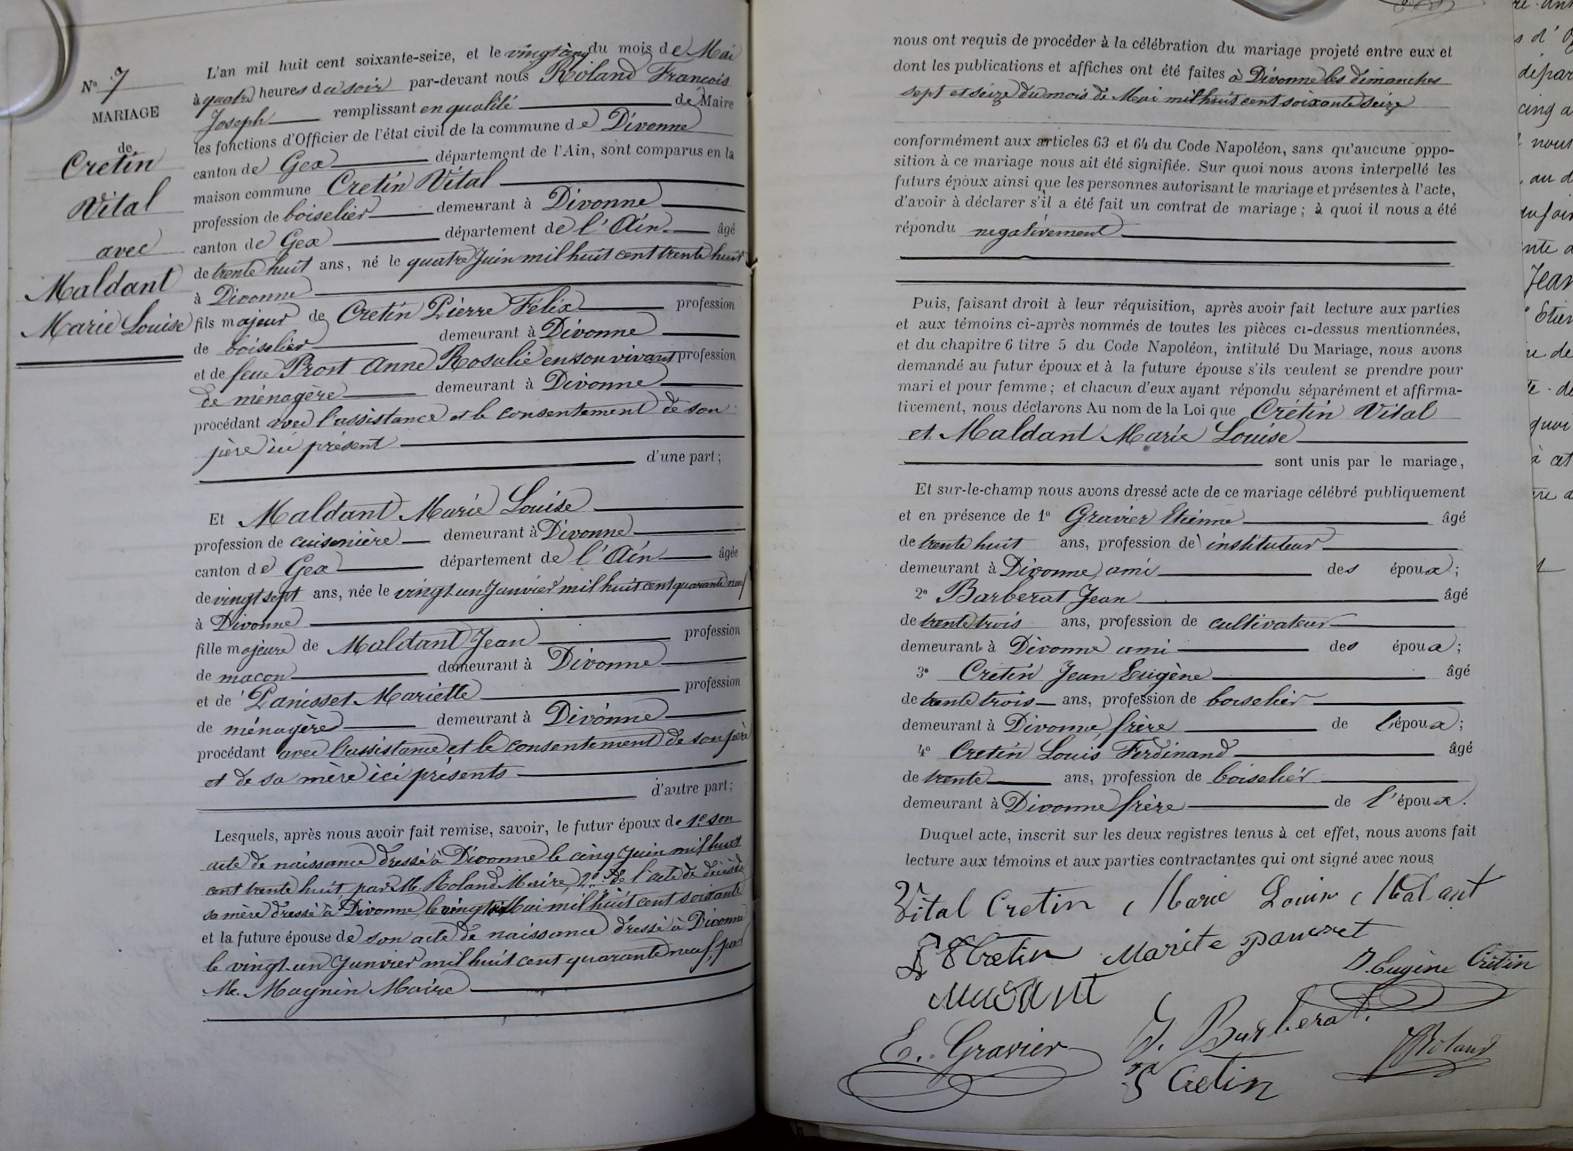 N° 7
MARIAGE
de
Cretin
Vital
avec
Maldant
Marie Louise
L'an mil huit cent soixante-seize, et le vingt cinq du mois de Mai
à quatre heures du soir par-devant nous Roland François
Joseph remplissant en qualité de Maire
les fonctions d'Officier de l'état civil de la commune de Divonne
canton de Gex département de l'Ain, sont comparus en la
maison commune Cretin Vital
profession de boiselier demeurant à Divonne
canton de Gex département de l'Ain âgé
de trente huit ans, né le quatre Juin mil huit cent trente huit
à Divonne
fils majeur de Cretin Pierre Félix profession
de boiselier demeurant à Divonne
et de feue Prost Anne Rosalie en son vivant profession
de ménagère demeurant à Divonne
procédant avec l'assistance et le consentement de son
père ici présent
d'une part;
Et Maldant Marie Louise
profession de cuisinière demeurant à Divonne
canton de Gex département de l'Ain âgée
de vingt sept ans, née le vingt un Janvier mil huit cent quarante neuf
à Divonne
fille majeure de Maldant Jean profession
de maçon demeurant à Divonne
et de Panisset Mariette profession
de ménagère demeurant à Divonne
procédant avec l'assistance et le consentement de son père
et de sa mère ici présents
d'autre part;
Lesquels, après nous avoir fait remise, savoir, le futur époux de 1° son
acte de naissance dressé à Divonne le cinq Juin mil huit
cent trente huit par M. Roland Maire, 2° de l'acte de décès de
sa mère dressé à Divonne le vingt Mai mil huit cent soixante
et la future épouse de son acte de naissance dressé à Divonne
le vingt un Janvier mil huit cent quarante neuf, par
M. Magnin Maire
nous ont requis de procéder à la célébration du mariage projeté entre eux et
dont les publications et affiches ont été faites à Divonne les dimanches
sept et seize du mois de Mai mil huit cent soixante seize
conformément aux articles 63 et 64 du Code Napoléon, sans qu'aucune oppo-
sition à ce mariage nous ait été signifiée. Sur quoi nous avons interpellé les
futurs époux ainsi que les personnes autorisant le mariage et présentes à l'acte,
d'avoir à déclarer s'il a été fait un contrat de mariage; à quoi il nous a été
répondu negativement
Puis, faisant droit à leur réquisition, après avoir fait lecture aux parties
et aux témoins ci-après nommés de toutes les pièces ci-dessus mentionnées,
et du chapitre 6 titre 5 du Code Napoléon, intitulé Du Mariage, nous avons
demandé au futur époux et à la future épouse s'ils veulent se prendre pour
mari et pour femme; et chacun d'eux ayant répondu séparément et affirma-
tivement, nous déclarons Au nom de la Loi que Crétin Vital
et Maldant Marie Louise
sont unis par le mariage,
Et sur-le-champ nous avons dressé acte de ce mariage célébré publiquement
et en présence de 1° Gravier Etienne âgé
de trente huit ans, profession de instituteur
demeurant à Divonne, ami des époux;
2° Barberat Jean âgé
de trente trois ans, profession de cultivateur
demeurant à Divonne ami des époux;
3° Cretin Jean Eugène âgé
de trente trois ans, profession de boiselier
demeurant à Divonne, frère de l'époux;
4° Cretin Louis Ferdinand âgé
de trente ans, profession de boiselier
demeurant à Divonne frère de l'époux.
Duquel acte, inscrit sur les deux registres tenus à cet effet, nous avons fait
lecture aux témoins et aux parties contractantes qui ont signé avec nous
Vital Cretin Marie Louise Maldant
Cretin Mariete
J. Eugène Crétin
E. Gravier J. Barberat
Cretin